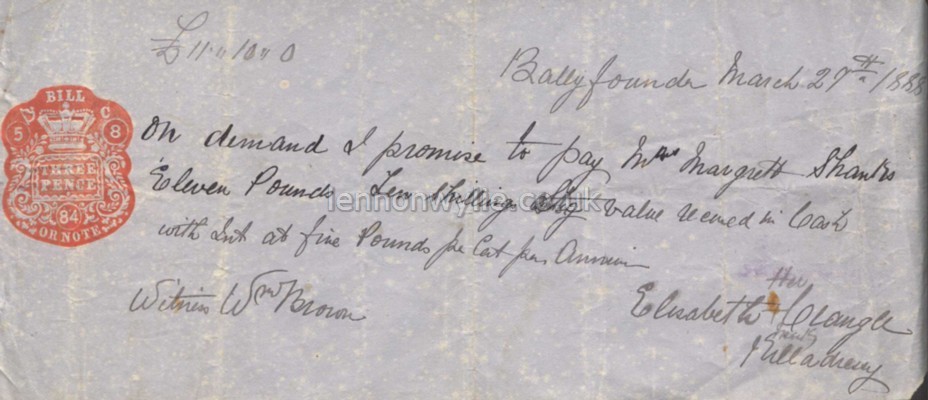 £11"10"0
Ballyfounder March 27th 1888
BILL
5 8
THREE
PENCE
84
OR NOTE
On demand I promise to pay Mrs Margrett Shanks
Eleven Pounds Ten Shillings Stg value received in Cash
with Int at five Pounds per Cent per Annum
lennonwylie.co.uk
Witness Wm Brown
Her
Elisabeth + Crangle
mark
Killadressy